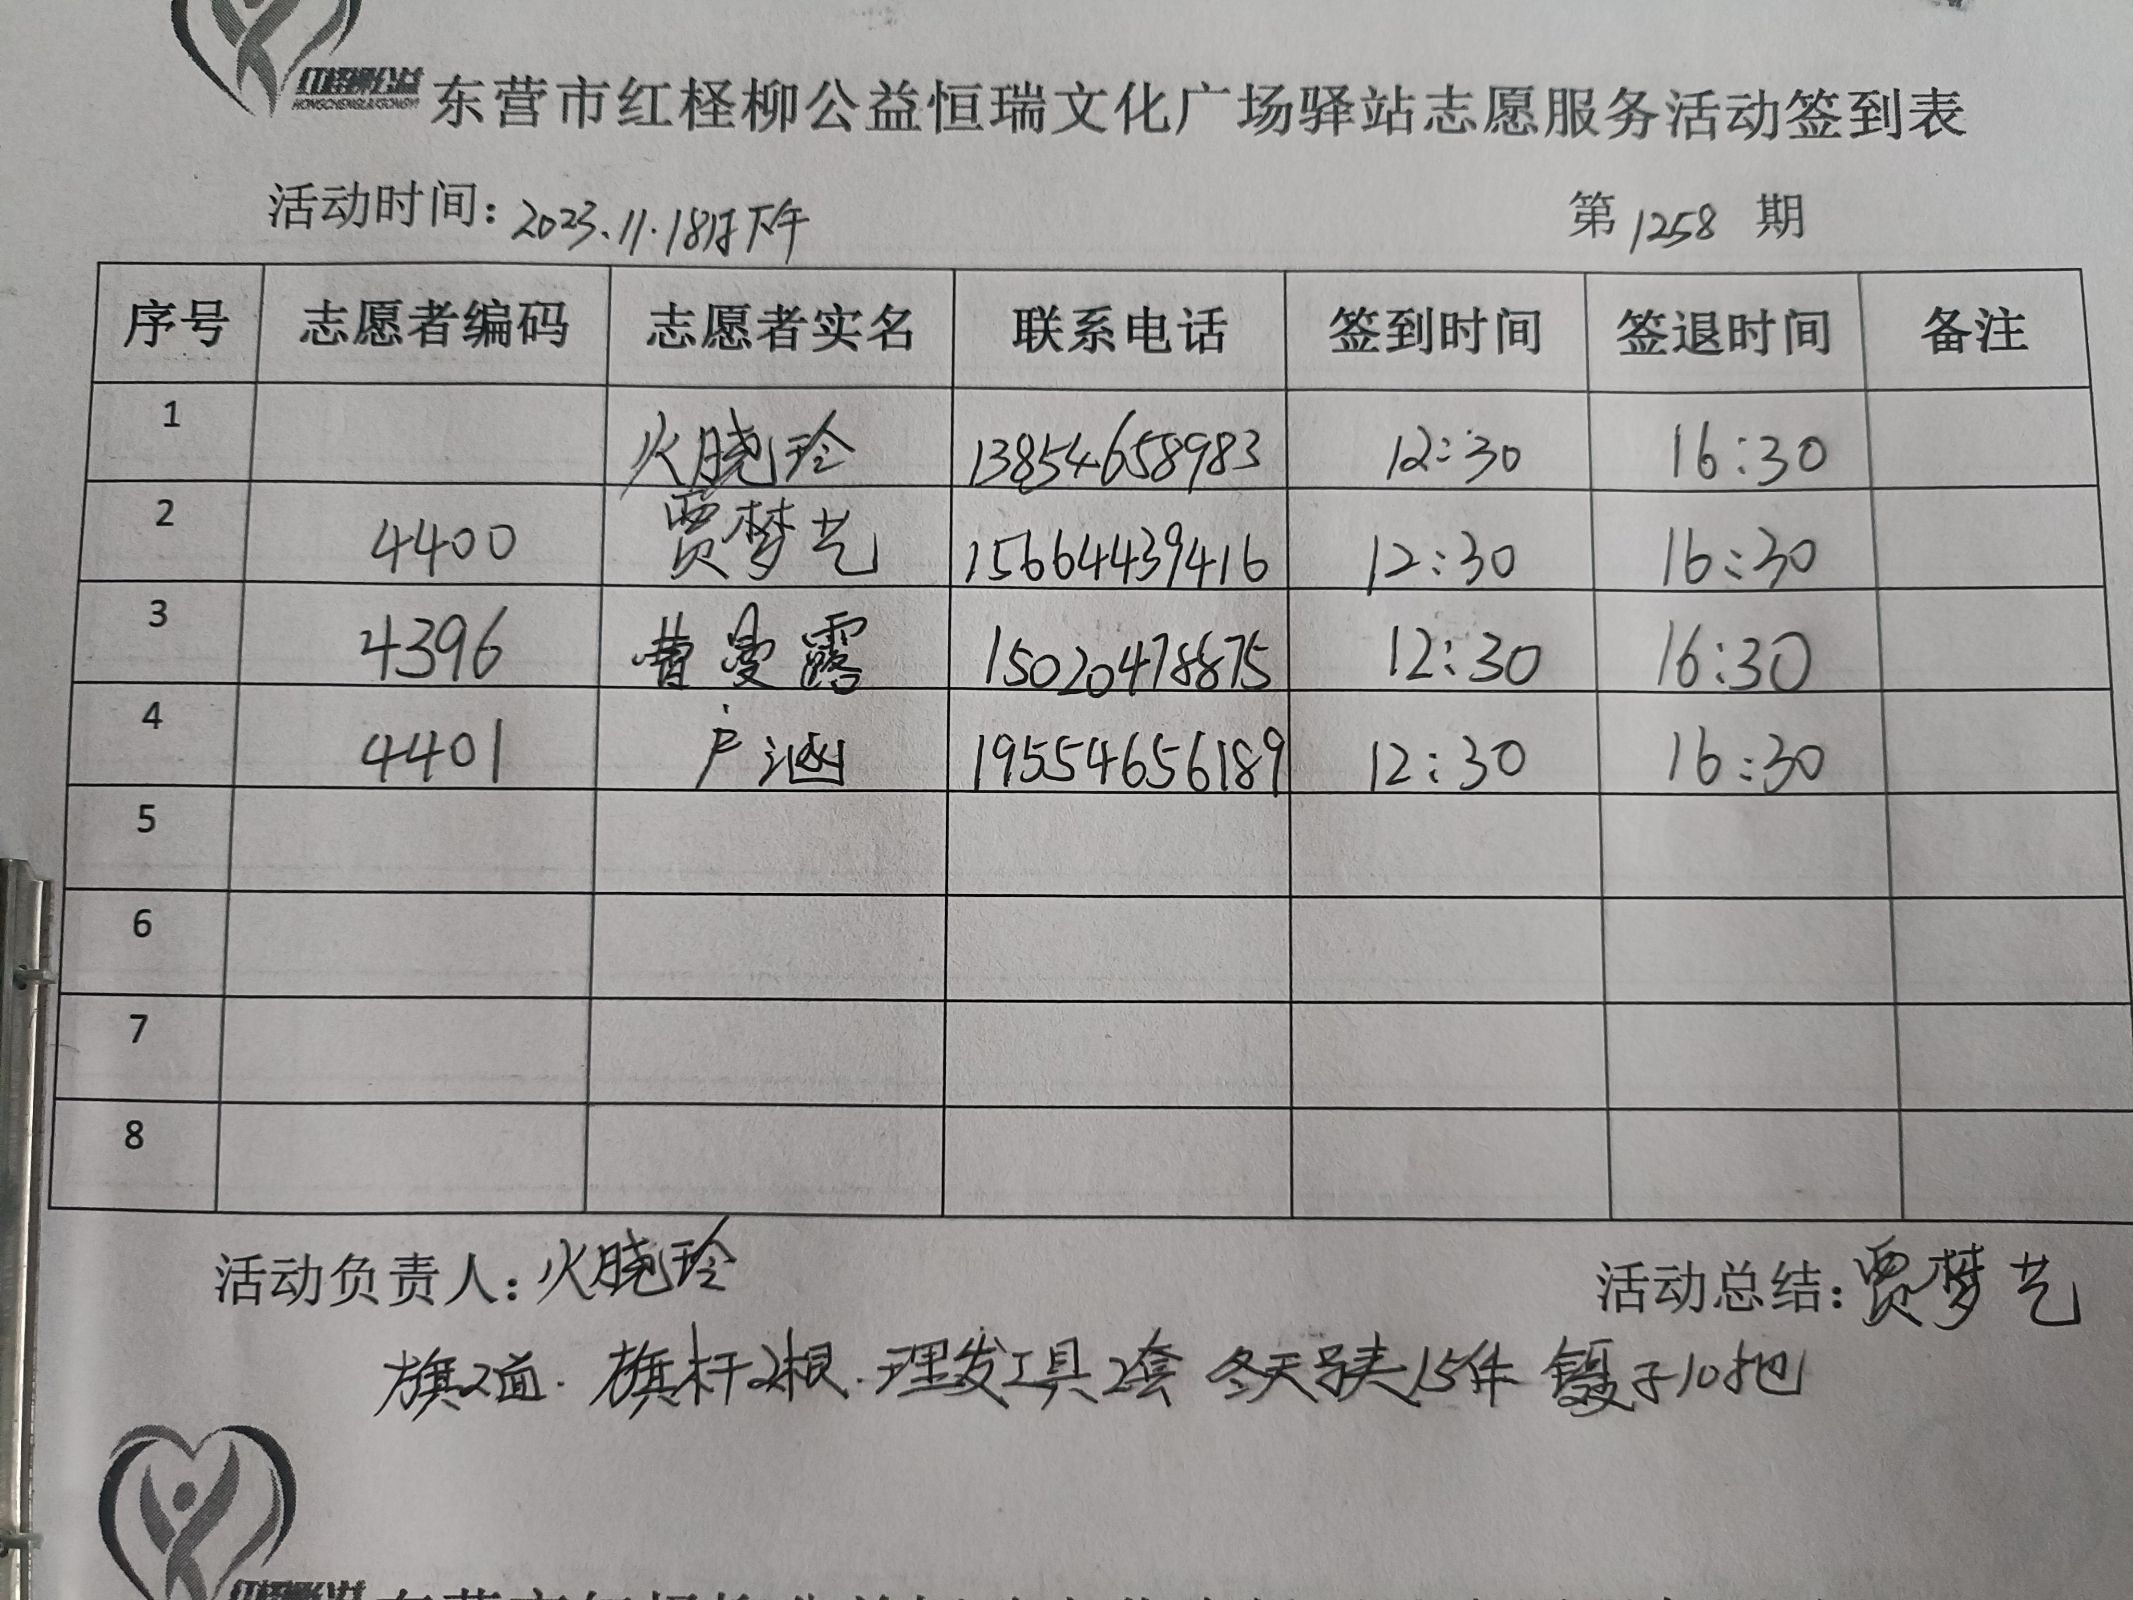 红柽柳公益
HONGCHENGLIUGONGYI
东营市红柽柳公益恒瑞文化广场驿站志愿服务活动签到表
活动时间：2023.11.18日下午 第1258期
序号 志愿者编码 志愿者实名 联系电话 签到时间 签退时间 备注
1 火晓玲 13854658983 12:30 16:30
2 4400 贾梦艺 15664439416 12:30 16:30
3 4396 曹曼露 15020478875 12:30 16:30
4 4401 卢汹 19554656189 12:30 16:30
5
6
7
8
活动负责人：火晓玲 活动总结：贾梦艺
旗2面. 旗杆2根. 理发工具2套 冬天马夹15件 镊子10把
红柽柳公益